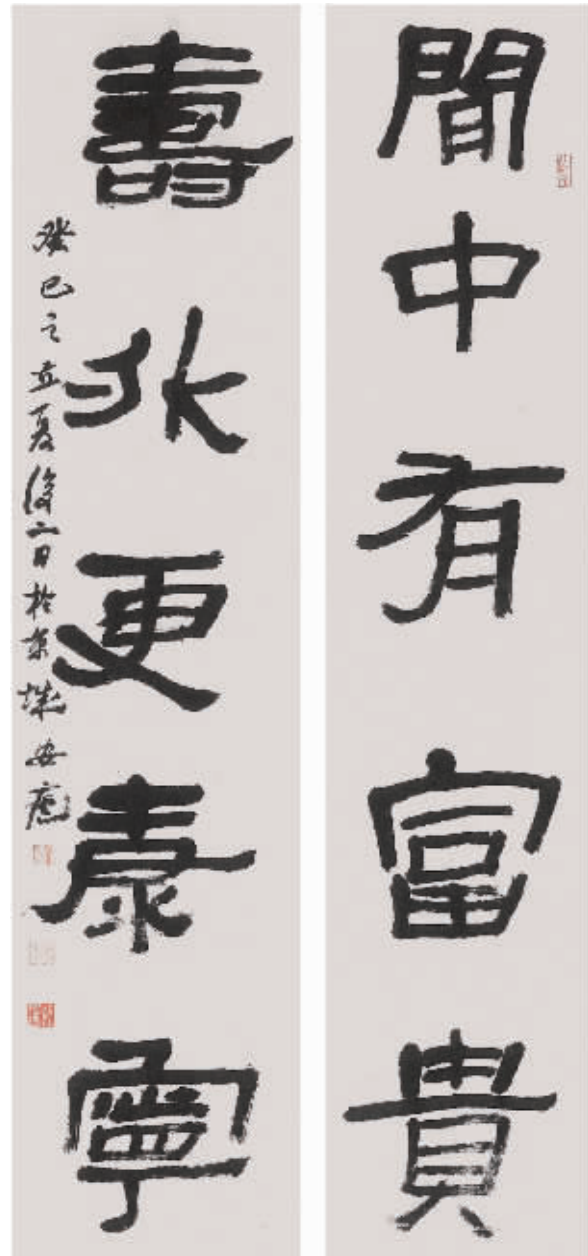 閒中有富貴
壽外更康寧
癸巳之立夏後二日於京城安